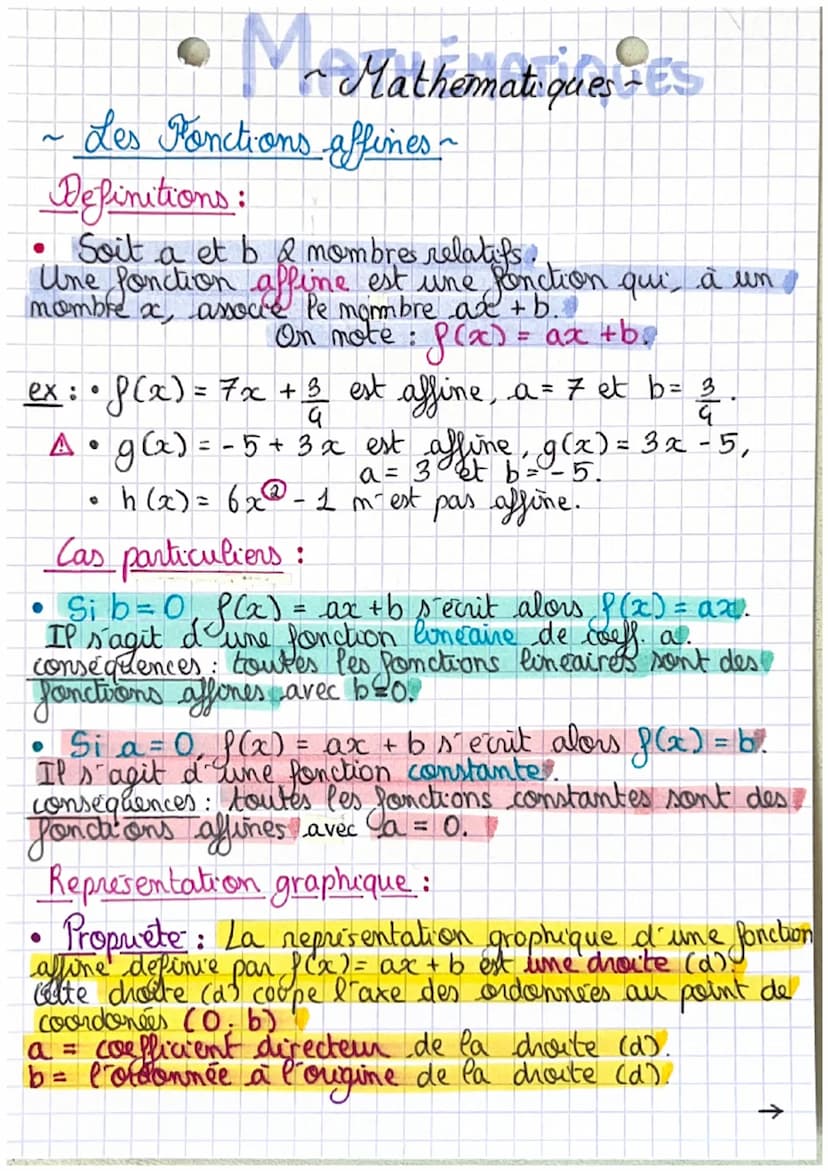 MATHÉMATIQUES
~ Mathématiques ~
~ Les Fonctions affines ~
Définitions :
• Soit a et b 2 nombres relatifs.
Une fonction affine est une fonction qui, à un
nombre x, associe le nombre ax + b.
On note : f(x) = ax + b.
ex : • f(x) = 7x + 3/4 est affine, a = 7 et b = 3/4.
⚠ • g(x) = - 5 + 3x est affine, g(x) = 3x - 5,
a = 3 et b = - 5.
• h(x) = 6x² - 1 n'est pas affine.
Cas particuliers :
• Si b = 0, f(x) = ax + b s'écrit alors f(x) = ax.
Il s'agit d'une fonction linéaire de coeff. a.
conséquences : toutes les fonctions linéaires sont des
fonctions affines avec b = 0.
• Si a = 0, f(x) = ax + b s'écrit alors f(x) = b.
Il s'agit d'une fonction constante.
conséquences : toutes les fonctions constantes sont des
fonctions affines avec a = 0.
Représentation graphique :
• Propriété : La représentation graphique d'une fonction
affine définie par f(x) = ax + b est une droite (d).
Cette droite (d) coupe l'axe des ordonnées au point de
coordonées (0; b)
a = coefficient directeur de la droite (d).
b = l'ordonnée à l'origine de la droite (d).
→